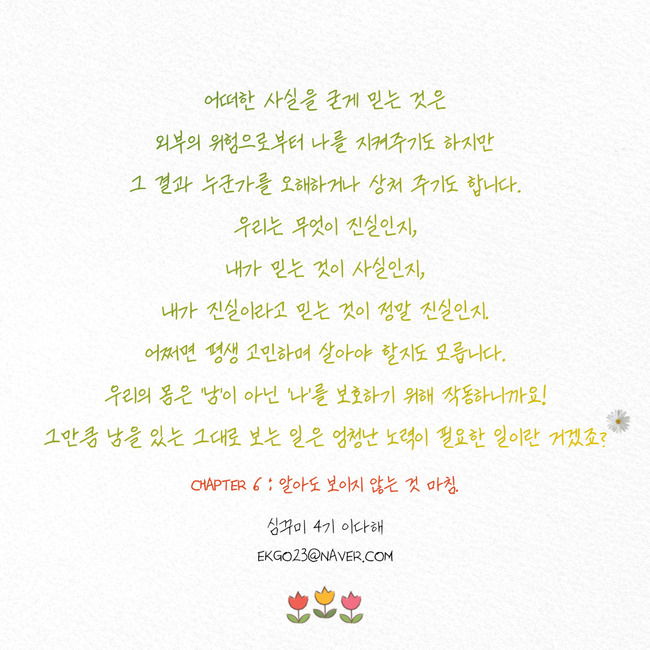 어떠한 사실을 굳게 믿는 것은
외부의 위험으로부터 나를 지켜주기도 하지만
그 결과 누군가를 오해하거나 상처 주기도 합니다.
우리는 무엇이 진실인지,
내가 믿는 것이 사실인지,
내가 진실이라고 믿는 것이 정말 진실인지.
어쩌면 평생 고민하며 살아야 할지도 모릅니다.
우리의 몸은 '남'이 아닌 '나'를 보호하기 위해 작동하니까요!
그만큼 남을 있는 그대로 보는 일은 엄청난 노력이 필요한 일이란 거겠죠?
CHAPTER 6 : 알아도 보이지 않는 것 마침.
심꾸미 4기 이다해
EKGO23@NAVER.COM